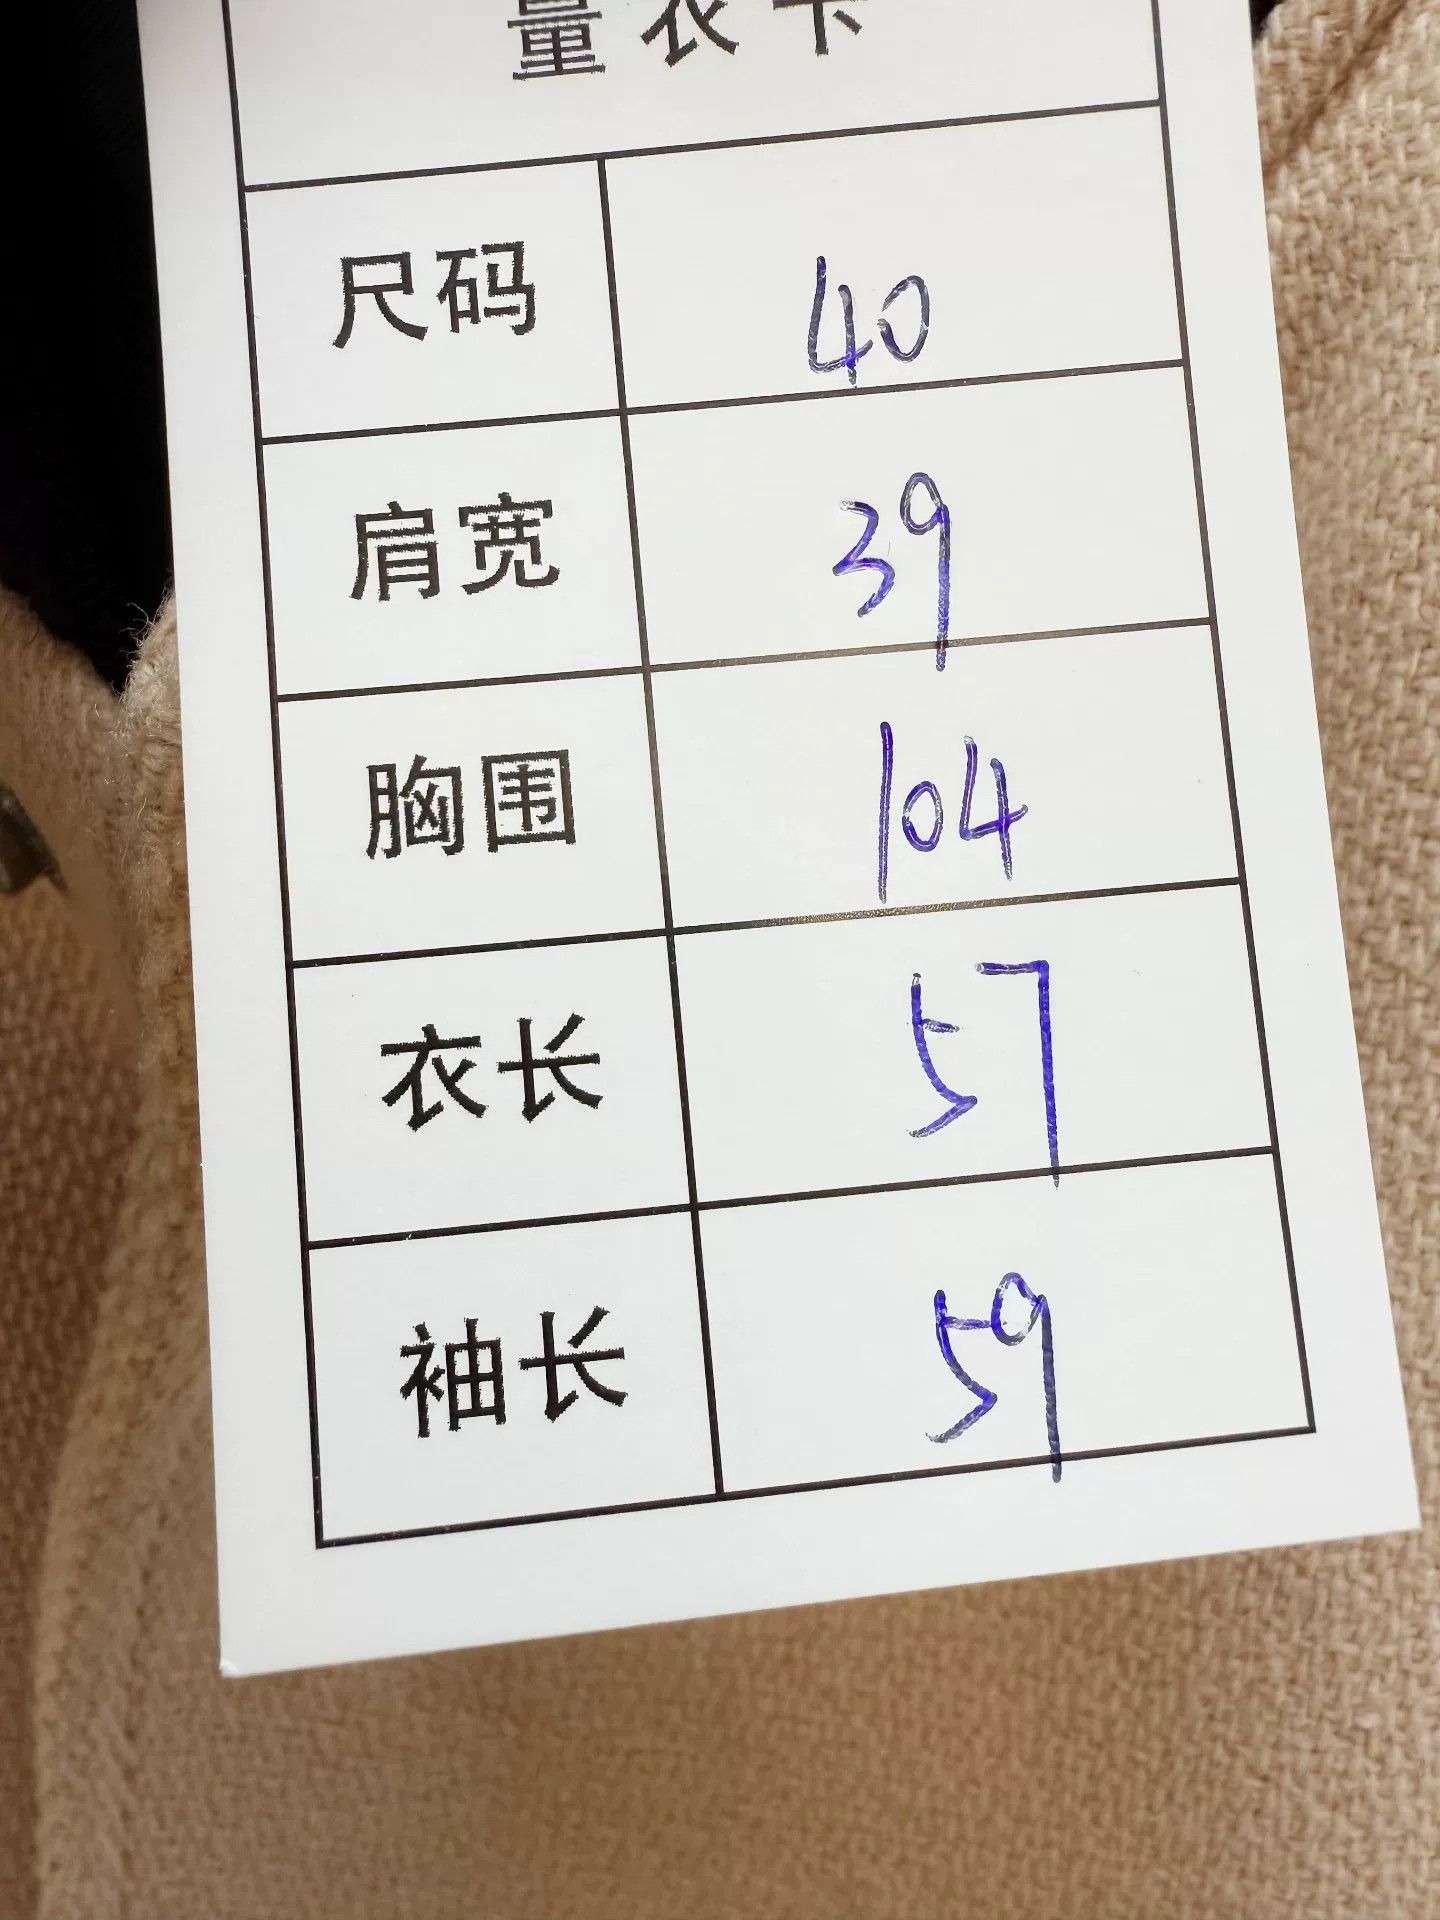 量衣卡
尺码 40
肩宽 39
胸围 104
衣长 57
袖长 59